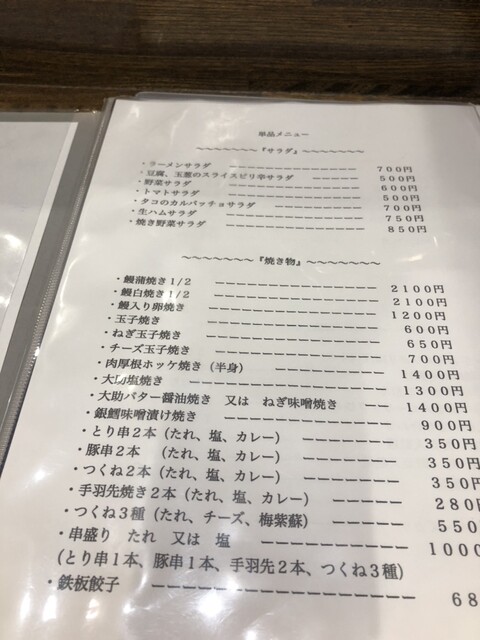 単品メニュー
～～～～～～～『サラダ』～～～～～～～
・ラーメンサラダ ーーーーーーーーーー 700円
・豆腐、玉葱のスライスピリ辛サラダ ーーーーー 500円
・野菜サラダ ーーーーーーーーーーー 600円
・トマトサラダ ーーーーーーーーーーー 500円
・タコのカルパッチョサラダ ーーーーーーー 700円
・生ハムサラダ ーーーーーーーーーーー 750円
・焼き野菜サラダ ーーーーーーーーーー 850円
～～～～～～～『焼き物』～～～～～～～
・鰻蒲焼き1/2 ーーーーーーーーーー 2100円
・鰻白焼き1/2 ーーーーーーーーーー 2100円
・鰻入り卵焼き ーーーーーーーーーー 1200円
・玉子焼き ーーーーーーーーーーーー 600円
・ねぎ玉子焼き ーーーーーーーーーー 650円
・チーズ玉子焼き ーーーーーーーーーー 700円
・肉厚根ホッケ焼き（半身） ーーーーーーー 1400円
・大助塩焼き ーーーーーーーーーーー 1300円
・大助バター醤油焼き 又は ねぎ味噌焼き ーー 1400円
・銀鱈味噌漬け焼き ーーーーーーーーー 900円
・とり串2本（たれ、塩、カレー） ーーーーー 350円
・豚串2本 （たれ、塩、カレー） ーーーーー 350円
・つくね2本（たれ、塩、カレー） ーーーーー 350円
・手羽先焼き2本（たれ、塩、カレー） ーーーー 280円
・つくね3種（たれ、チーズ、梅紫蘇） ーーーー 550
・串盛り たれ 又は 塩 ーーーーーーー 1000
（とり串1本、豚串1本、手羽先2本、つくね3種）
・鉄板餃子 ーーーーーーーーーーーー 68